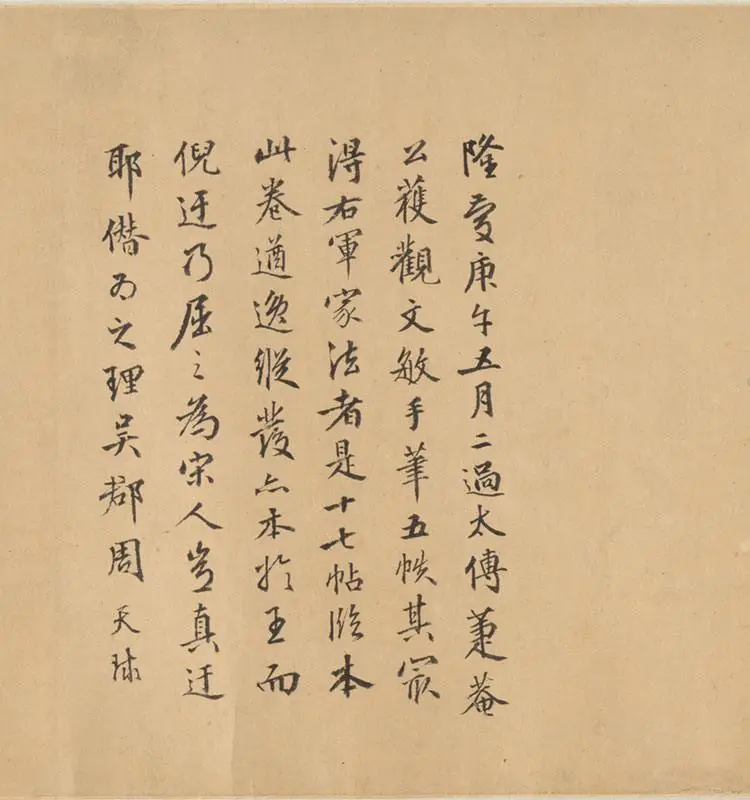 隆慶庚午五月二過太傅菴
公獲觀文敏手筆五帙其㝡
得右軍家法者是十七帖臨本
此卷遒逸縱發亦本於王而
倪迂乃屈之為宋人豈真迂
耶僭為之理吳郡周天球